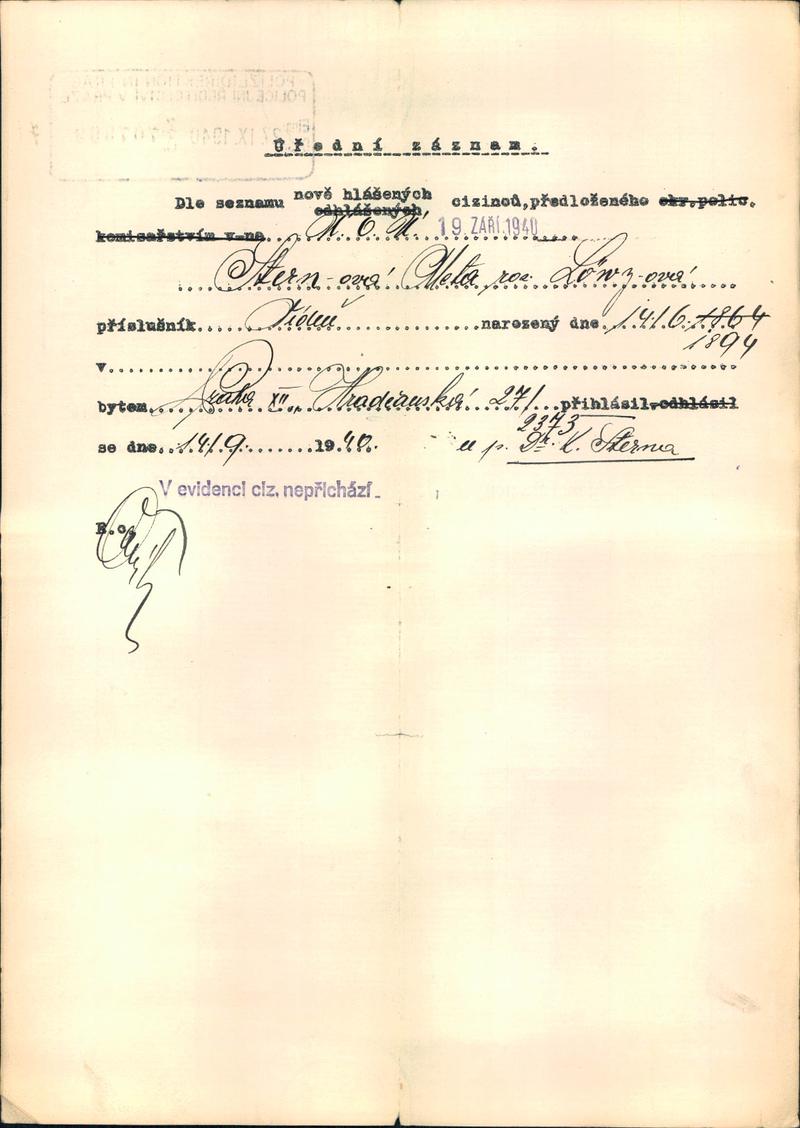 POLIZEIDIREKTION IN PRAG
POLICEJNÍ ŘEDITELSTVÍ V PRAZE
IX. 1940
Úřední záznam.
Dle seznamu nově hlášených odhlášených cizinců, předloženého okr.polic.
komisařstvím v-na 19. ZÁŘÍ 1940
Stern-ová Meta roz. Löwy-ová
příslušník Vídeň narozený dne 14/6. 1864
1894
v
bytem Praha XII., Hradčanská 27/ přihlásil-odhlásil
2373
se dne 14/9 1940. u p. Dr. K. Sterna
V evidenci ciz. nepřichází